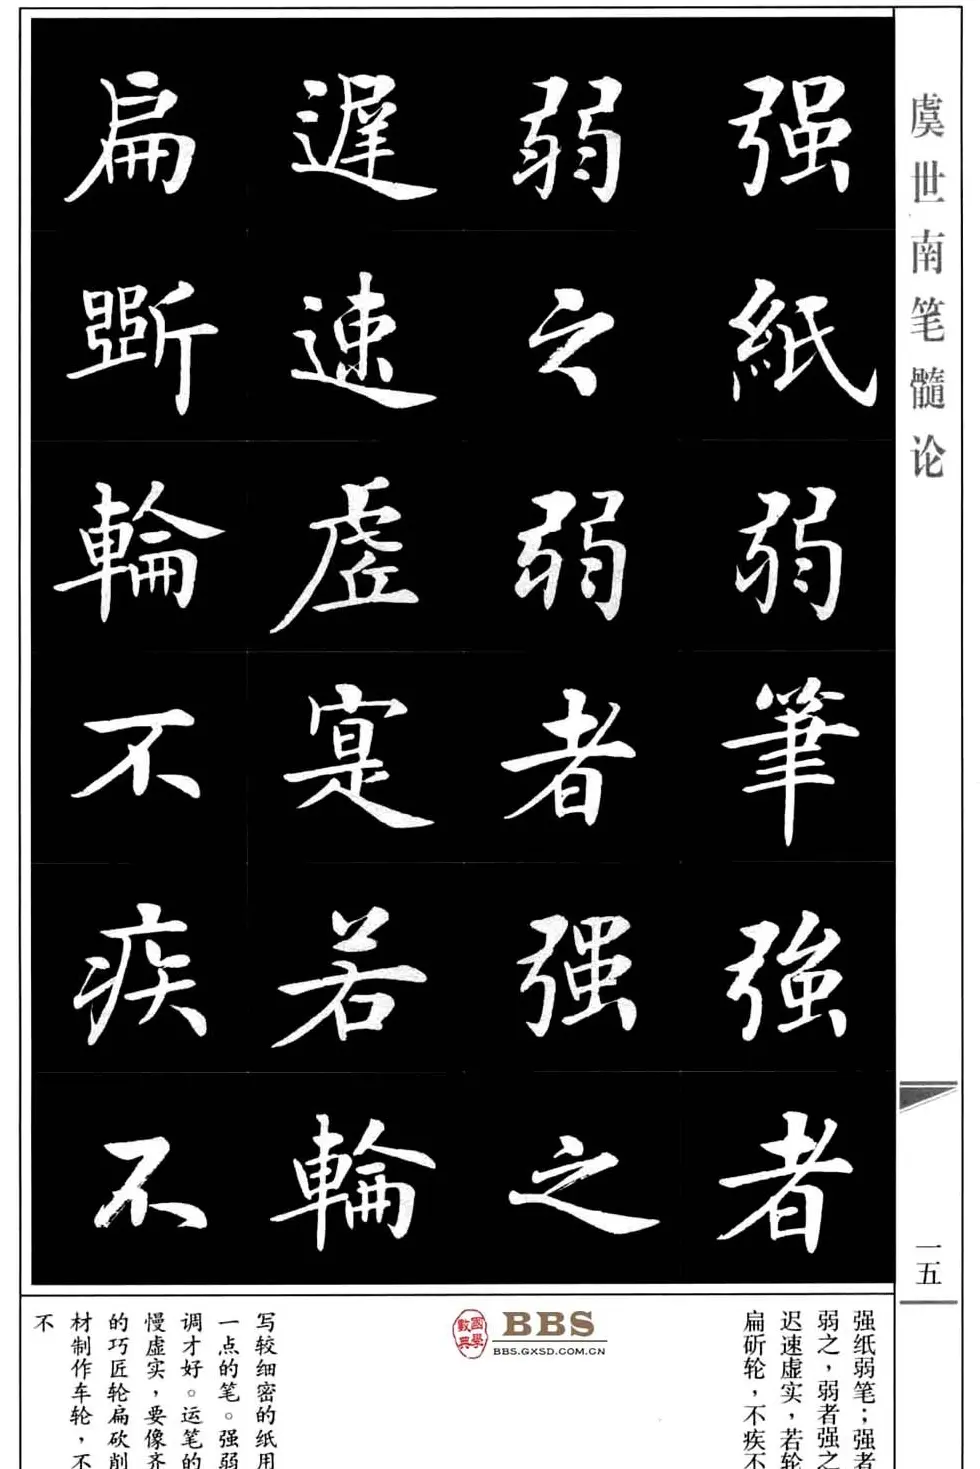 虞世南笔髓论
强紙弱筆強者
弱之弱者强之
遲速虚寔若輪
扁斲輪不疾不
一五
强纸弱笔；强者
弱之，弱者强之
迟速虚实，若轮
扁斫轮，不疾不
國學數典
BBS
BBS.GXSD.COM.CN
写较细密的纸用
一点的笔。强弱
调才好。运笔的
慢虚实，要像齐
的巧匠轮扁砍削
材制作车轮，不
不